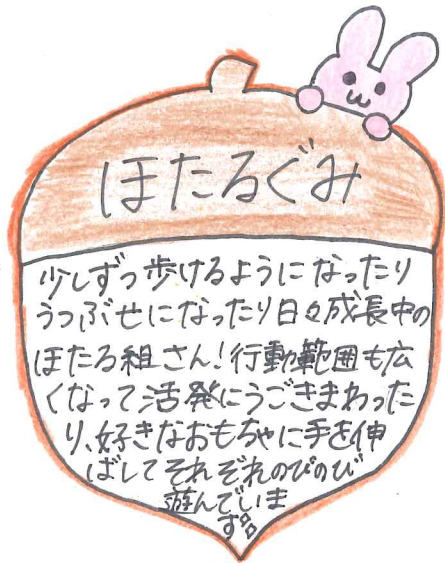 ほたるぐみ
少しずつ歩けるようになったり
うつぶせになったり日々成長中の
ほたる組さん!行動範囲も広
くなって活発にうごきまわった
り、好きなおもちゃに手を伸
ばしてそれぞれのびのび
遊んでいま
す